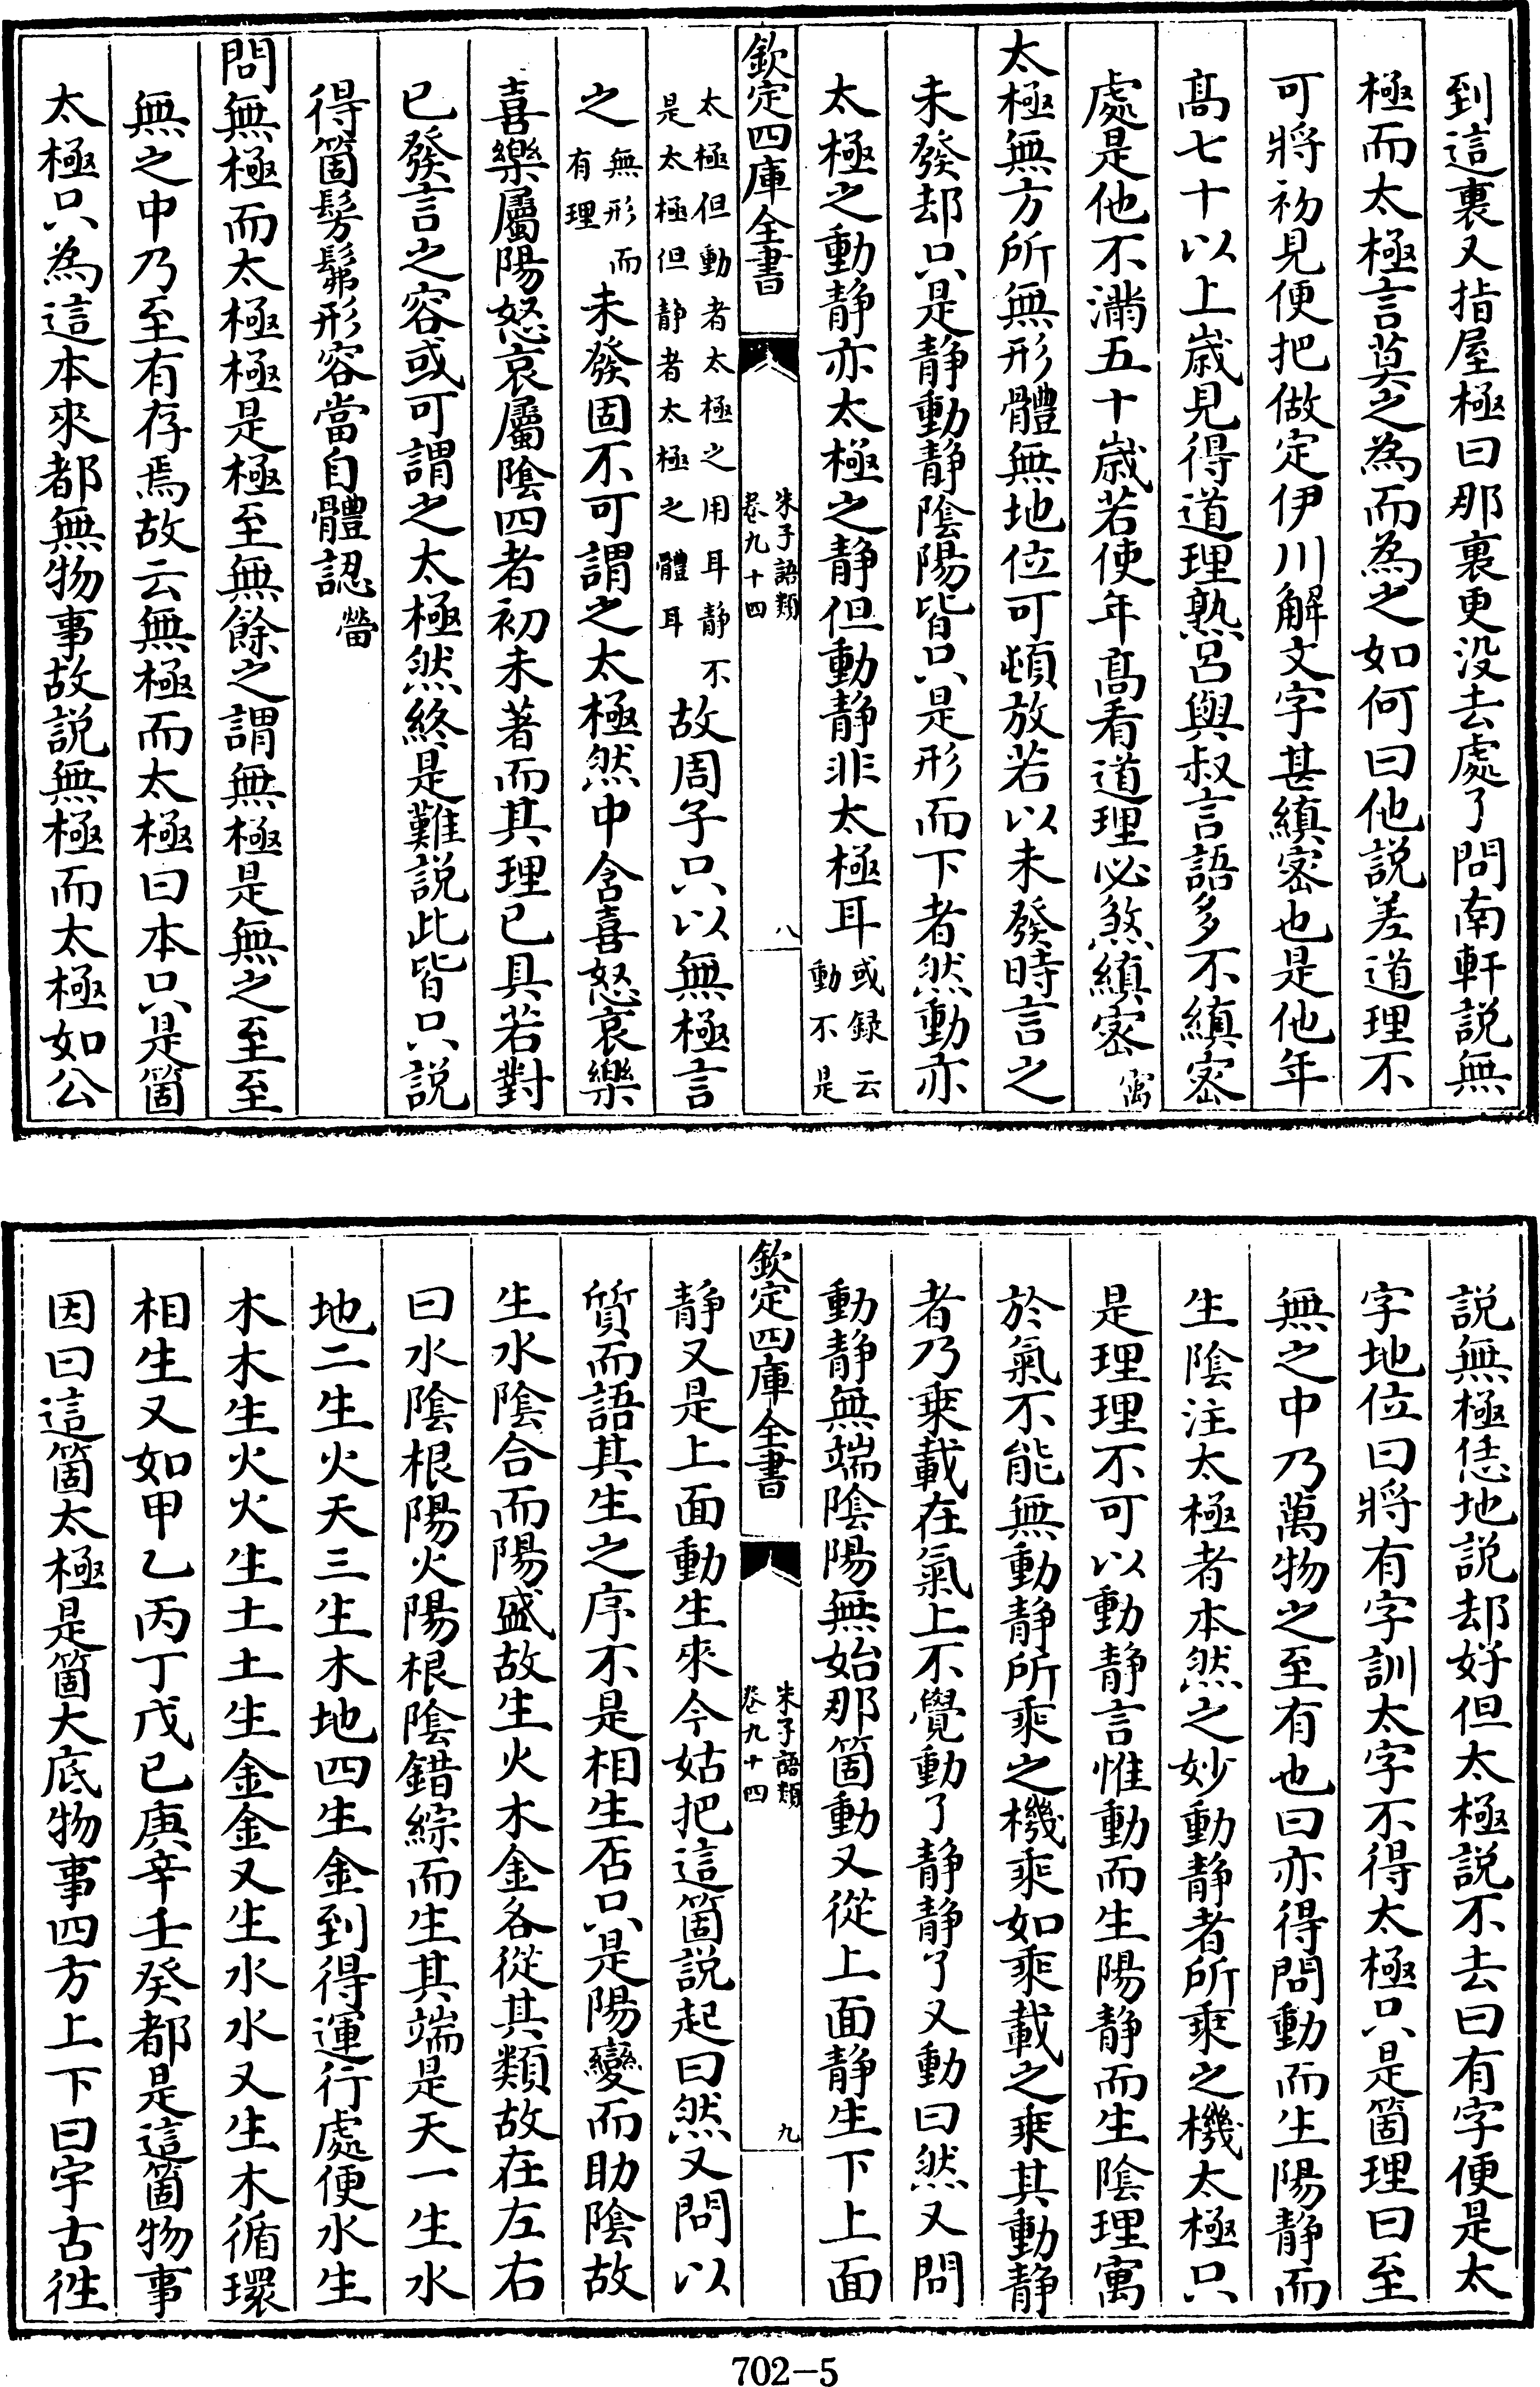 到這裏又指屋極曰那裏更没去處了問南軒説無
極而太極言莫之為而為之如何曰他説差道理不
可將初見便把做定伊川解文字甚縝宻也是他年
髙七十以上歳見得道理熟呂與叔言語多不縝宻
處是他不滿五十歳若使年髙看道理必煞縝宻㝢
太極無方所無形體無地位可頓放若以未發時言之
未發却只是静動静陰陽皆只是形而下者然動亦
太極之動静亦太極之静但動静非太極耳或録云動不是
欽定四庫全書 朱子語類 卷九十四 八
太極但動者太極之用耳静不是太極但静者太極之體耳故周子只以無極言
之無形而有理未發固不可謂之太極然中含喜怒哀樂
喜樂屬陽怒哀屬陰四者初未著而其理已具若對
已發言之容或可謂之太極然終是難説此皆只説
得箇髣髴形容當自體認㽦
問無極而太極極是極至無餘之謂無極是無之至至
無之中乃至有存焉故云無極而太極曰本只是箇
太極只為這本來都無物事故説無極而太極如公
説無極恁地説却好但太極説不去曰有字便是太
字地位曰將有字訓太字不得太極只是箇理曰至
無之中乃萬物之至有也曰亦得問動而生陽静而
生陰注太極者本然之妙動静者所乘之機太極只
是理理不可以動静言惟動而生陽静而生陰理寓
於氣不能無動静所乘之機乘如乘載之乘其動静
者乃乗載在氣上不覺動了静静了又動曰然又問
動静無端陰陽無始那箇動又從上面静生下上面
欽定四庫全書 朱子語類 卷九十四 九
静又是上面動生來今姑把這箇説起曰然又問以
質而語其生之序不是相生否只是陽變而助陰故
生水陰合而陽盛故生火木金各從其類故在左右
曰水陰根陽火陽根陰錯綜而生其端是天一生水
地二生火天三生木地四生金到得運行處便水生
木木生火火生土土生金金又生水水又生木循環
相生又如甲乙丙丁戊已庚辛壬癸都是這箇物事
因曰這箇太極是箇大底物事四方上下曰宇古徃
702-5